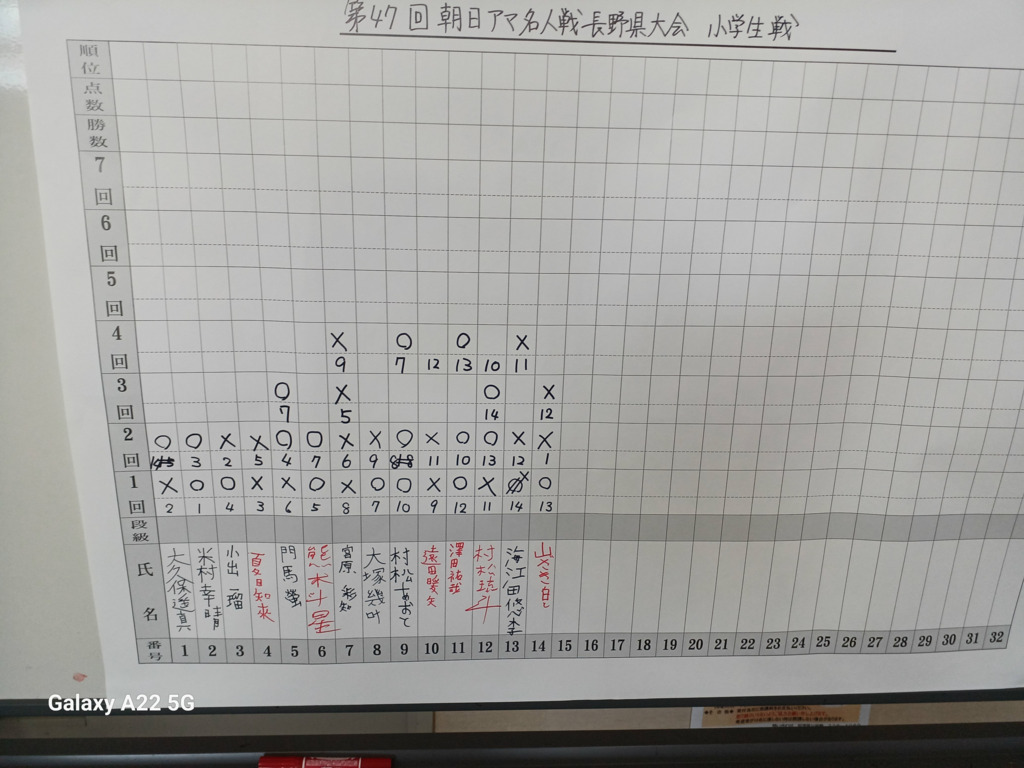 第47回 朝日アマ名人戦 長野県大会 小学生戦
順位
点数
勝数
7回
6回
5回
4回 × ○ ○ ×
9 7 12 13 10 11
3回 ○ × ○ ×
7 5 14 12
2回 ○ ○ × × ○ ○ × × ○ × ○ ○ × ×
3 2 5 4 7 6 9 11 10 13 12 1
1回 × ○ ○ × × ○ × ○ ○ × ○ × × ○
2 1 4 3 6 5 8 7 10 9 12 11 14 13
段級
氏名 大久保遼真 米村幸晴 小出一瑠 夏目知來 門馬蛍 熊木斗星 宮原彩知 大塚幾叶 村松あおと 遠田暖矢 澤田祐哉 村松 海江田悠 山さき
番号 1 2 3 4 5 6 7 8 9 10 11 12 13 14 15 16 17 18 19 20 21 22 23 24 25 26 27 28 29 30 31 32
Galaxy A22 5G